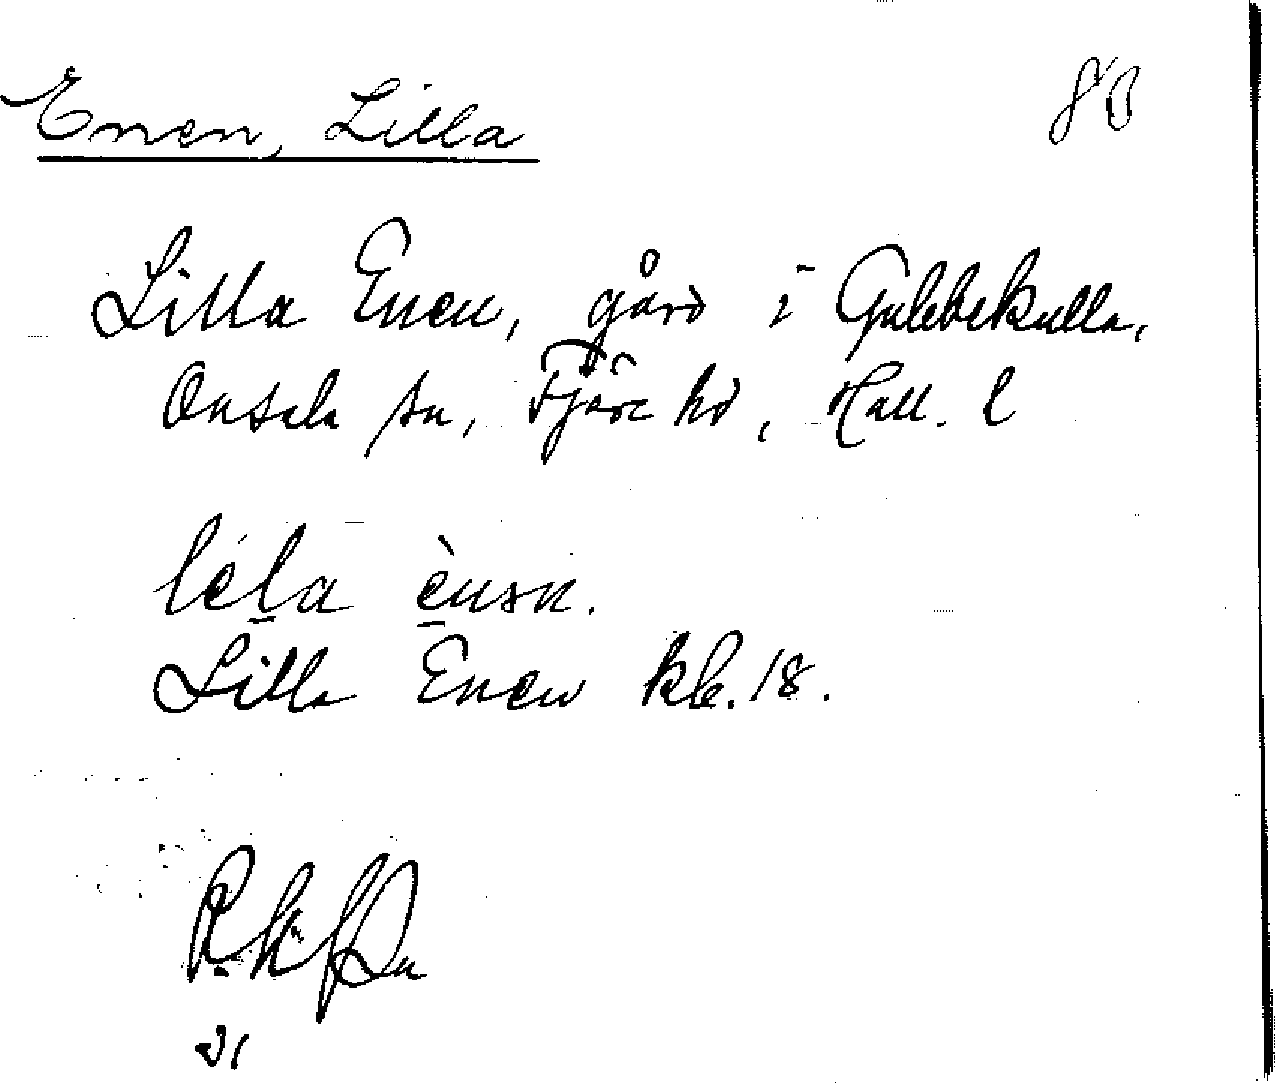 Enen, Lilla
80
Lilla Enen, gård i Gubbekulla,
Onsala sn, Fjäre hd, Hall. l
léla
Lilla Enen kb. 18.